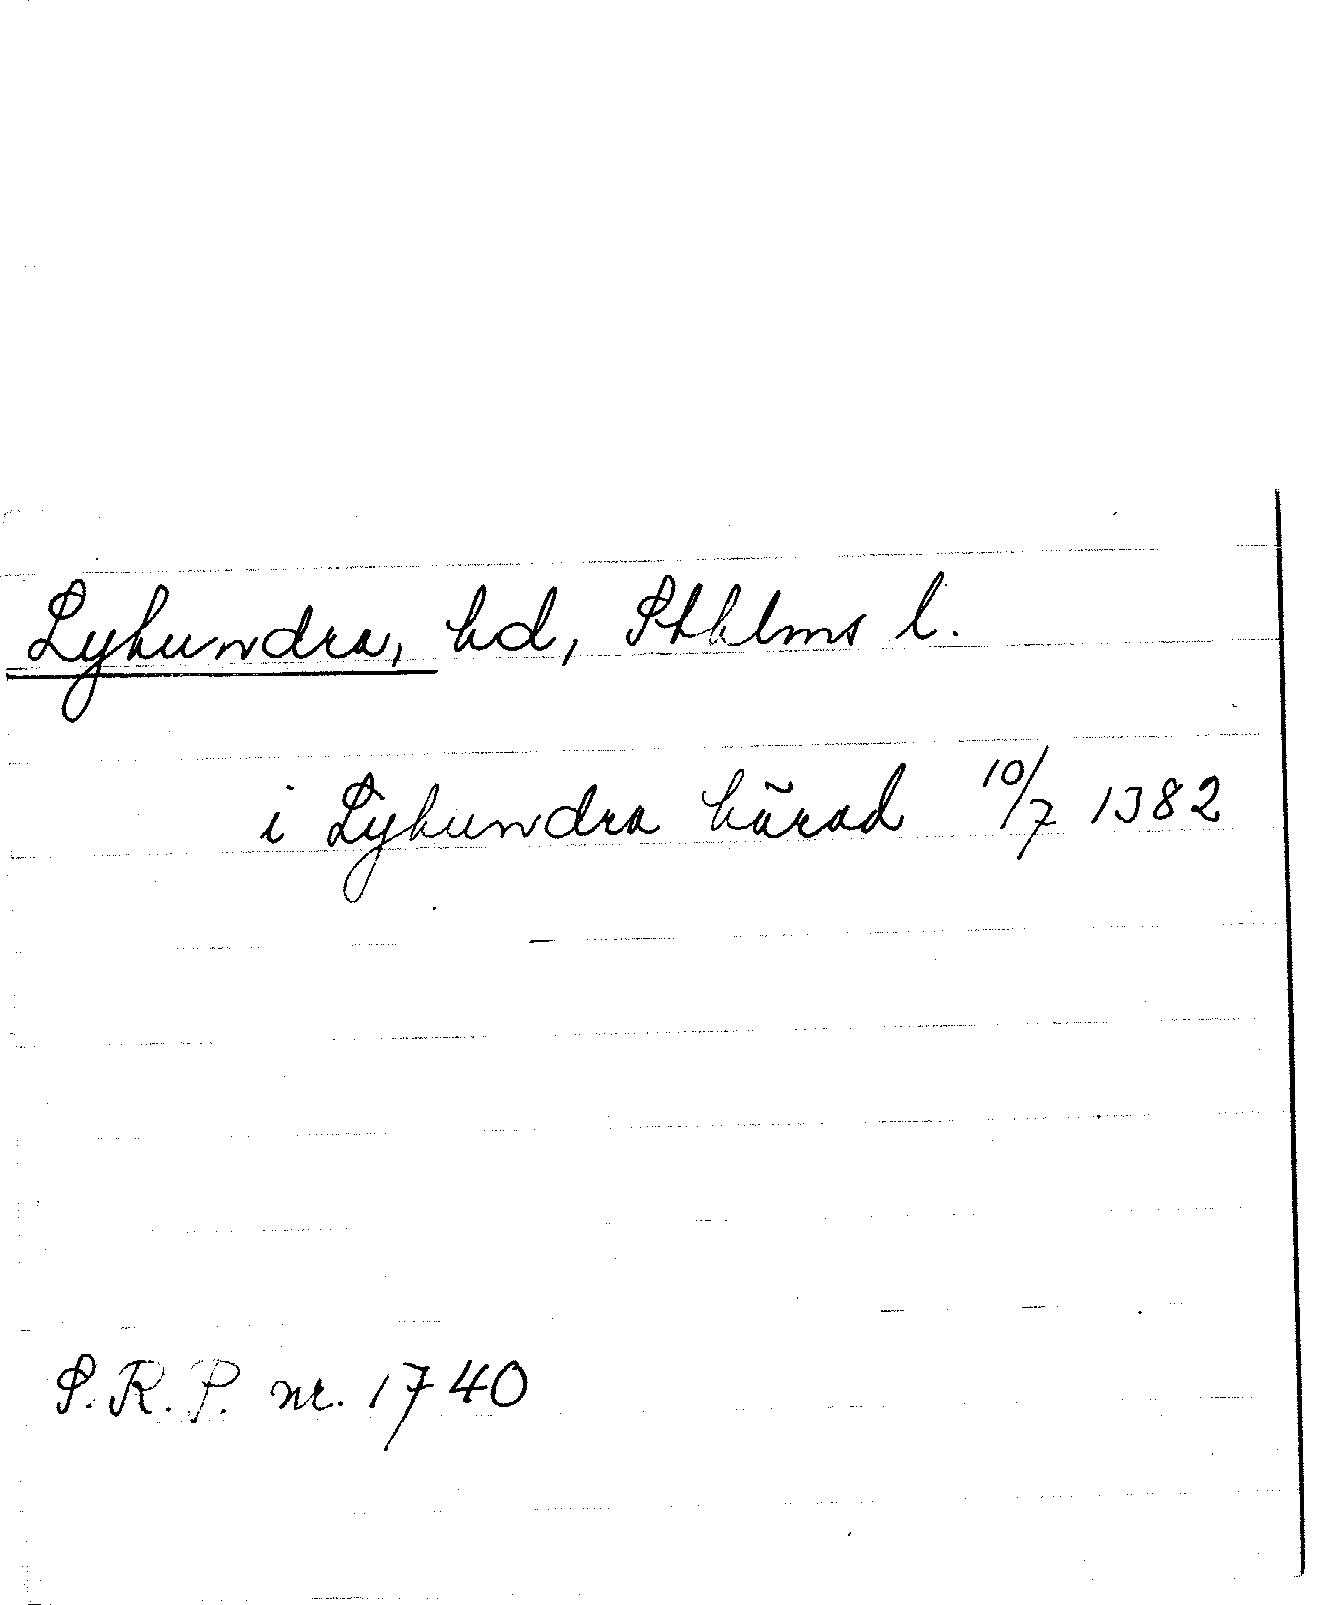 Lyhundra, hd, Sthlms l.
i Lyhundra härad 10/7 1382
S.R.P. nr. 1740